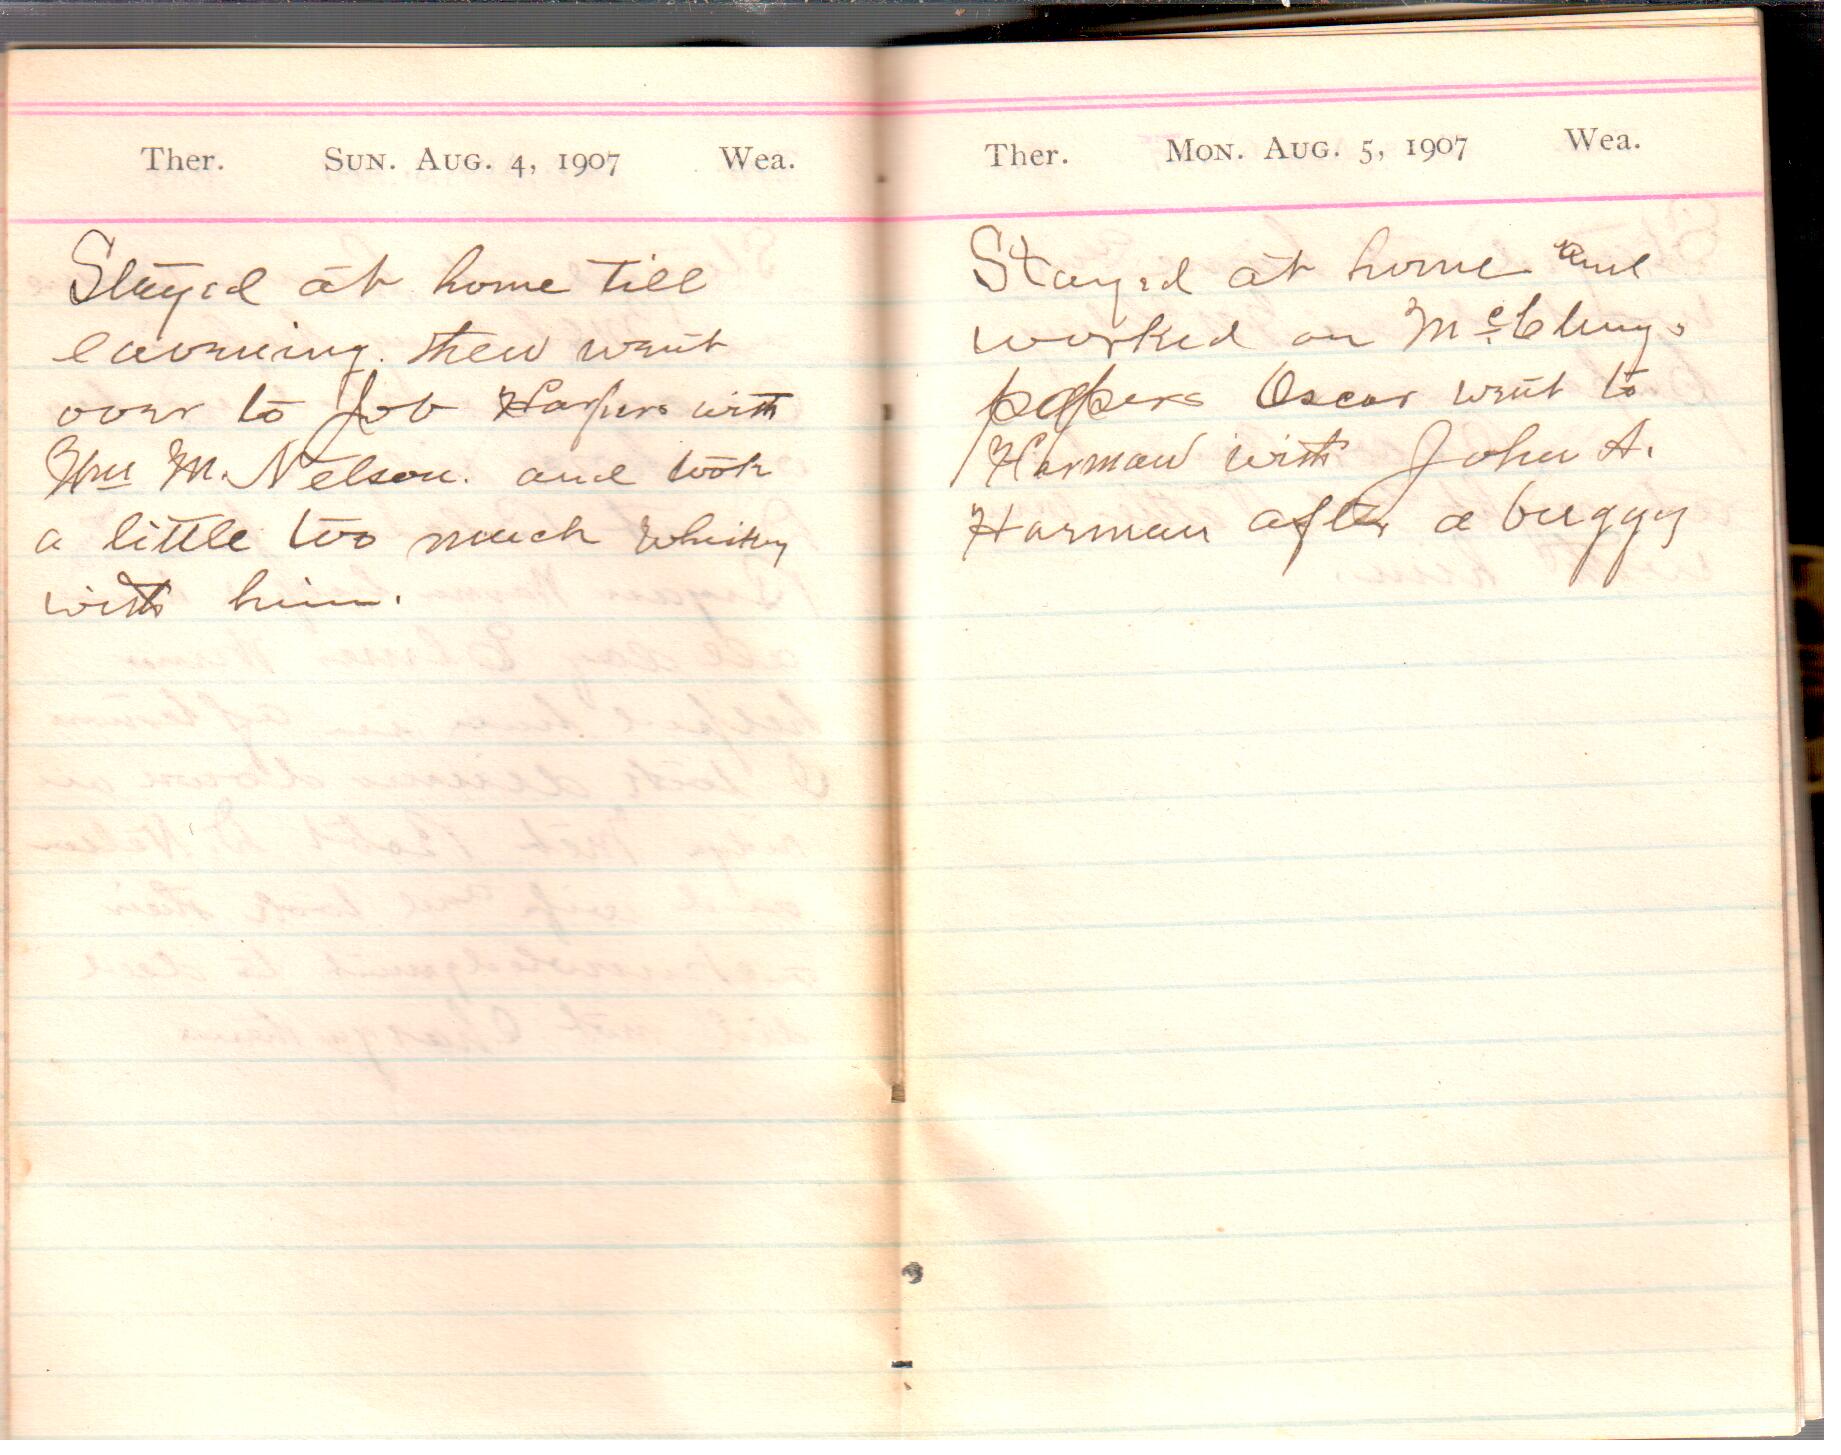 Ther. SUN. AUG. 4, 1907 Wea.
Stayed at home till
eavening. then went
over to Job Harpers with
Wm M. Nelson. and took
a little too much whiskey
with him.
Ther. MON. AUG. 5, 1907 Wea.
Stayed at home and
worked on McClungs
papers Oscar went to
Harman with John A.
Harman after a buggy